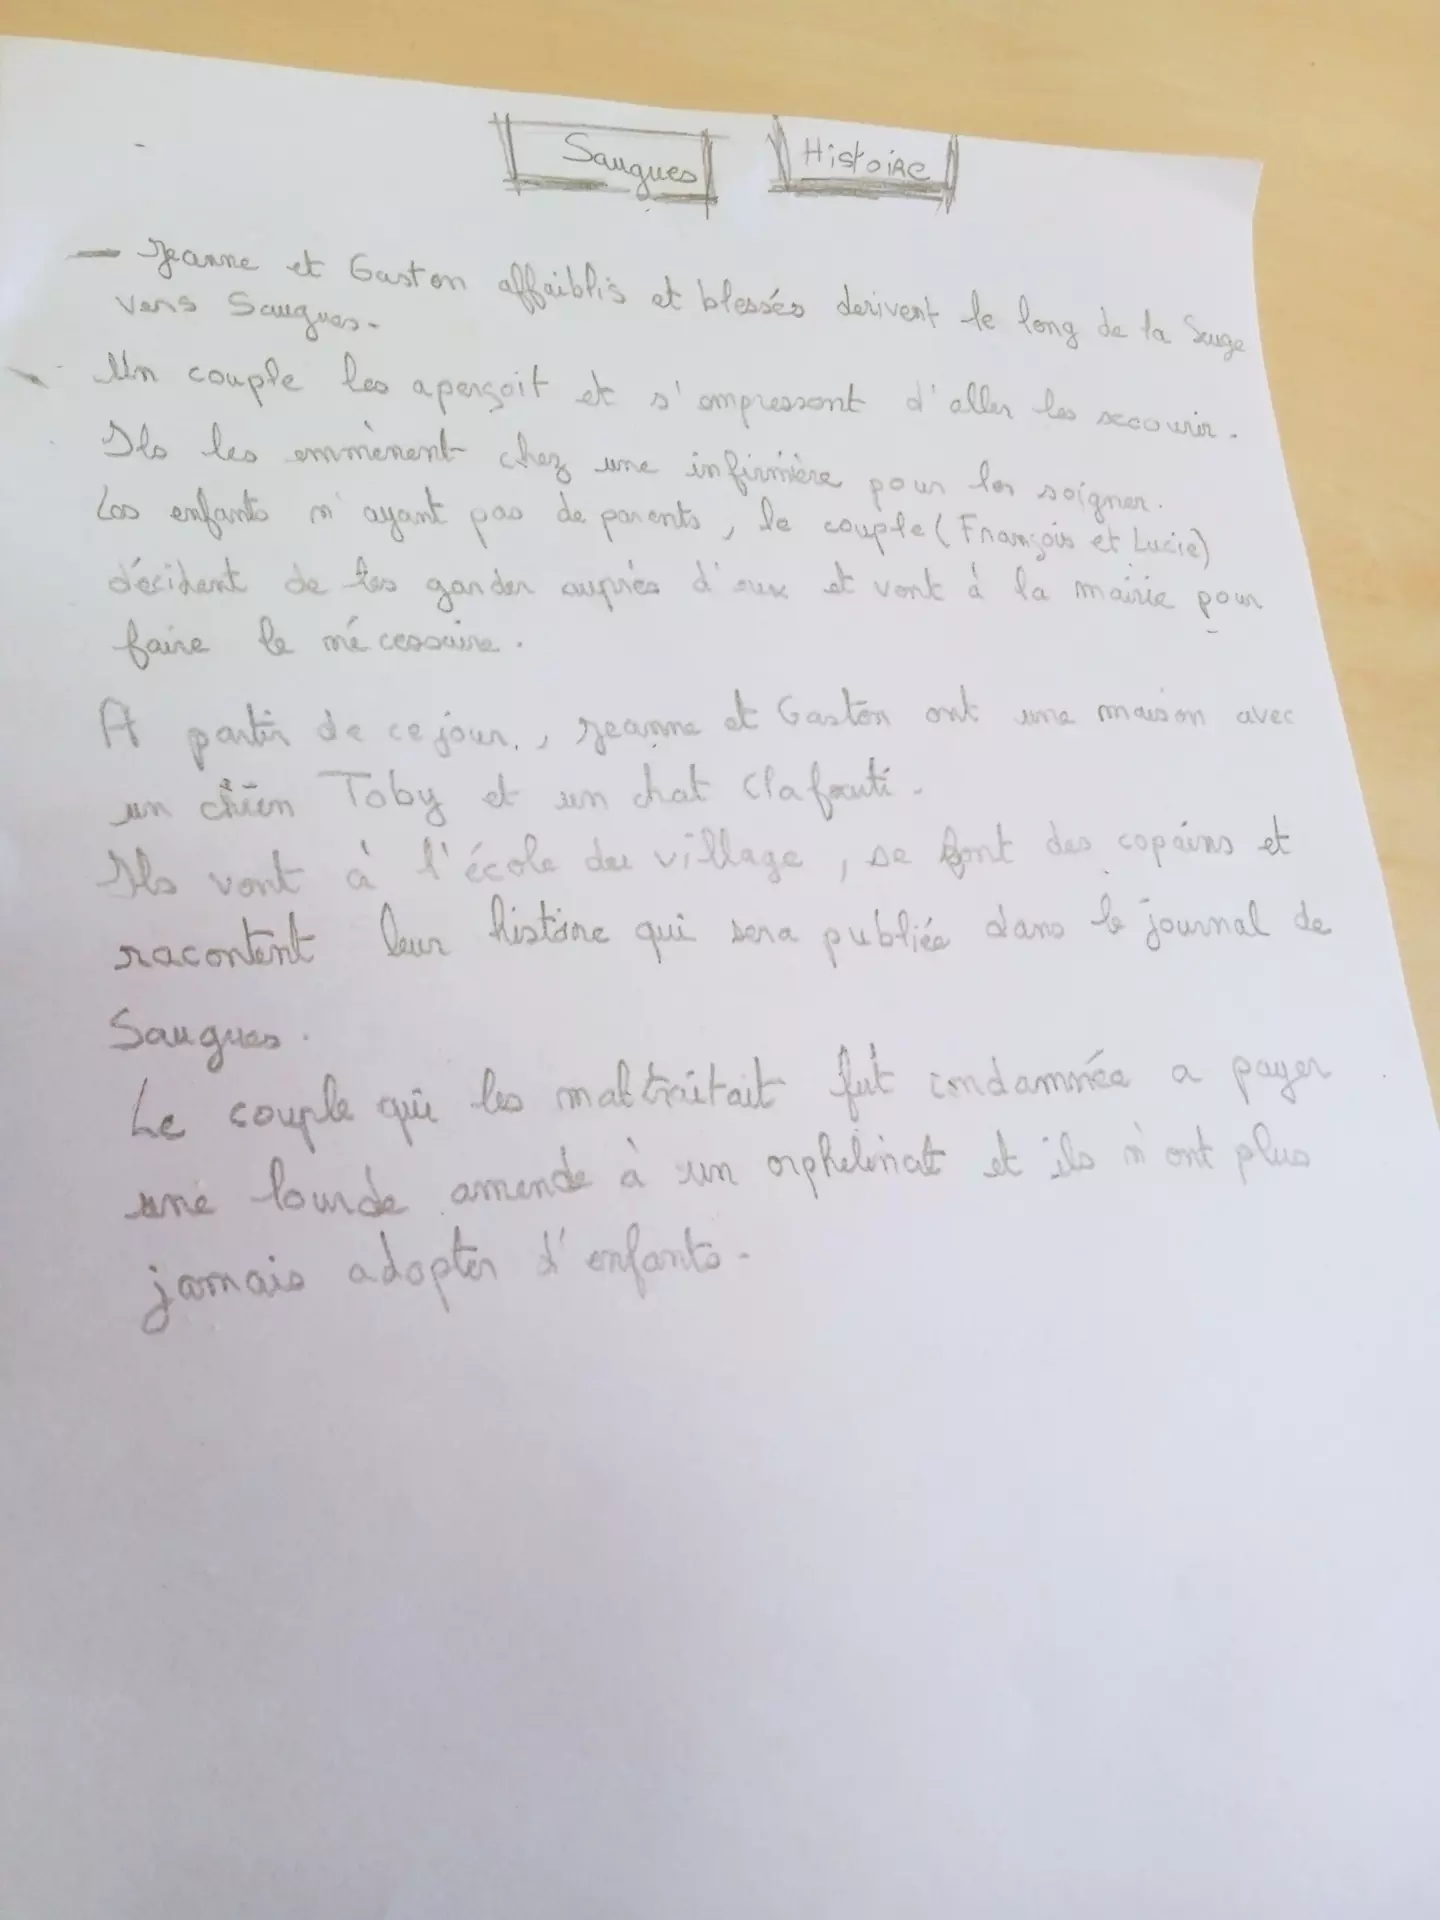 Saugues Histoire
- Jeanne et Gaston affaiblis et blessés derivent le long de la Seuge
vers Saugues.
- Un couple les aperçoit et s'empressent d'aller les secourir.
Ils les emmènent chez une infirmière pour les soigner.
Les enfants n'ayant pas de parents, le couple (François et Lucie)
décident de les garder auprès d'eux et vont à la mairie pour
faire le nécessaire.
A partir de ce jour, Jeanne et Gaston ont une maison avec
un chien Toby et un chat Clafouti.
Ils vont à l'école du village, se font des copains et
racontent leur histoire qui sera publiée dans le journal de
Saugues.
Le couple qui les maltraitait fut condamnée a payer
une lourde amende à un orphelinat et ils n'ont plus
jamais adopter d'enfants.